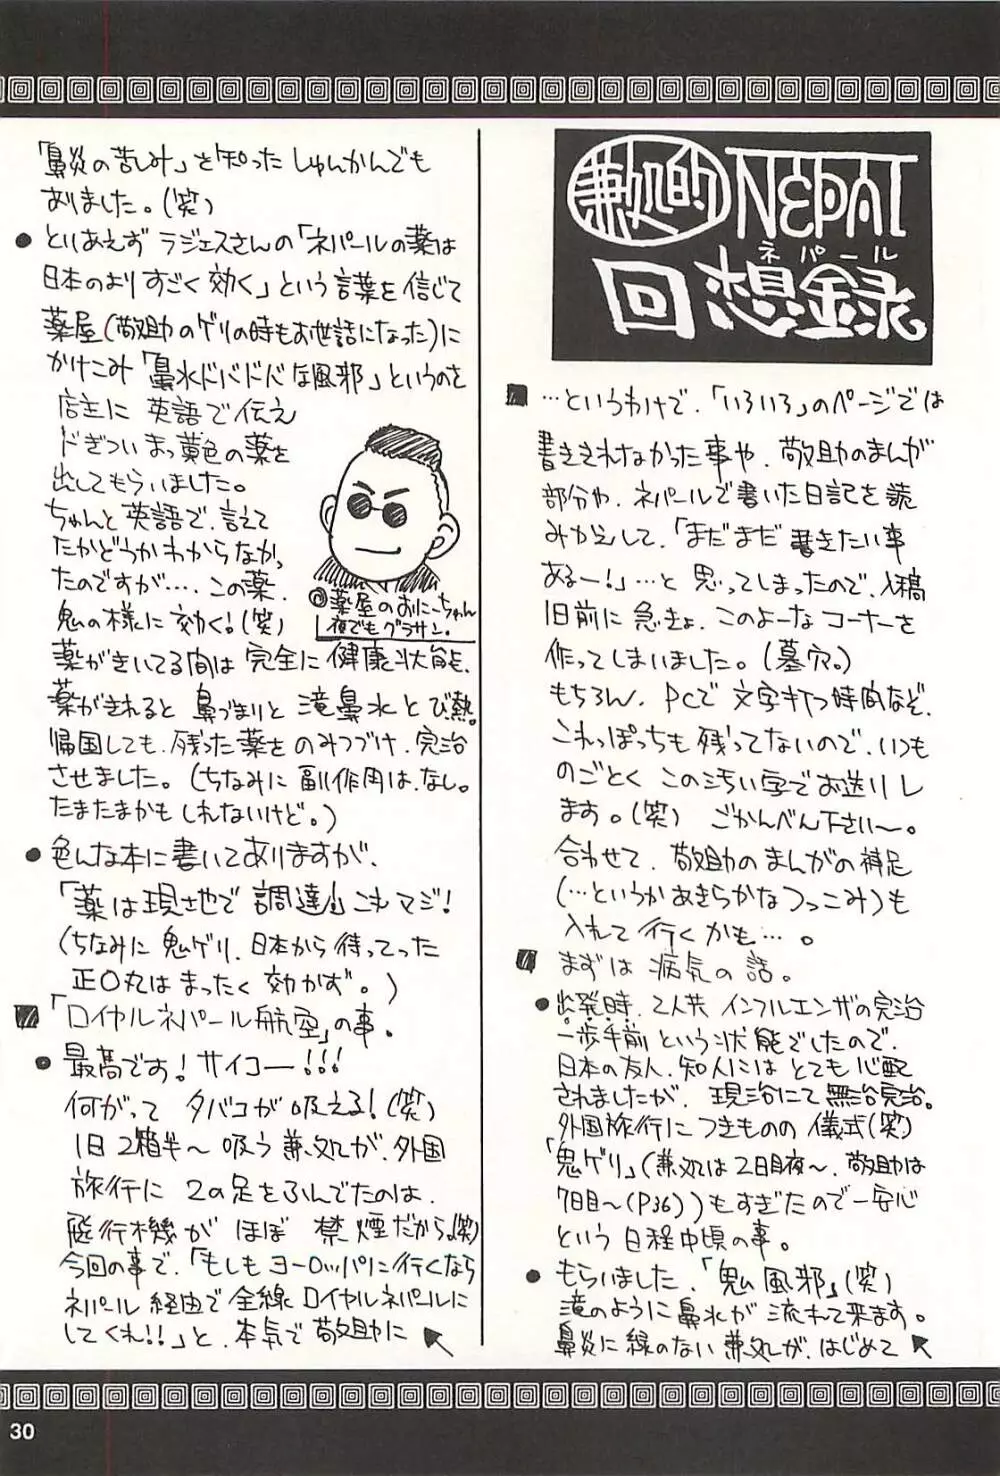 兼処的 NEPAL
ネパール
回想録
■ …というわけで、「いろいろ」のページでは
書ききれなかった事や、敬助のまんが
部分や、ネパールで書いた日記を読
みかえして、「まだまだ書きたい事
あるー!」…と思ってしまったので、入稿
1日前に急きょ、このよーなコーナーを
作ってしまいました。(墓穴。)
もちろん、PCで文字打つ時間など、
これっぽっちも残ってないので、いつも
のごとくこの汚い字でお送りし
ます。(笑) ごかんべん下さい〜。
合わせて、敬助のまんがの補足
(…というかあきらかなつっこみ)も
入れて行くかも…。
■ まずは病気の話。
● 出発時、2人共インフルエンザの完治
一歩手前という状態でしたので、
日本の友人、知人にはとても心配
されましたが、現治にて無治完治。
外国旅行につきものの儀式(笑)
「鬼ゲリ」(兼処は2日目夜〜、敬助は
7日目〜(P36))もすぎたので一安心
という日程中頃の事。
● もらいました、「鬼風邪」(笑)
滝のように鼻水が流れて来ます。
鼻炎に縁のない兼処が、はじめて
「鼻炎の苦しみ」を知ったしゅんかんでも
ありました。(笑)
● とりあえずラジェスさんの「ネパールの薬は
日本のよりすごく効く」という言葉を信じて
薬屋(敬助のゲリの時もお世話になった)に
かけこみ「鼻水ドバドバな風邪」というのを
店主に英語で伝え
ドぎついまっ黄色の薬を
出してもらいました。
ちゃんと英語で、言えて
たかどうかわからなかっ
たのですが…、この薬、
鬼の様に効く!(笑)
◎薬屋のおにーちゃん
夜でもグラサン。
薬がきいてる間は完全に健康状態、
薬がきれると鼻づまりと滝鼻水とび熱。
帰国しても、残った薬をのみつづけ、完治
させました。(ちなみに副作用は、なし。
たまたまかもしれないけど。)
● 色んな本に書いてありますが、
「薬は現地で調達」これマジ!
(ちなみに鬼ゲリ、日本から持ってった
正〇丸はまったく効かず。)
■「ロイヤルネパール航空」の事。
● 最高です!サイコー!!!
何がってタバコが吸える!(笑)
1日2箱半〜吸う兼処が、外国
旅行に2の足をふんでたのは、
飛行機がほぼ禁煙だから。(笑)
今回の事で、「もしもヨーロッパに行くなら
ネパール経由で全線ロイヤルネパールに
してくれ!!」と、本気で敬助に
30